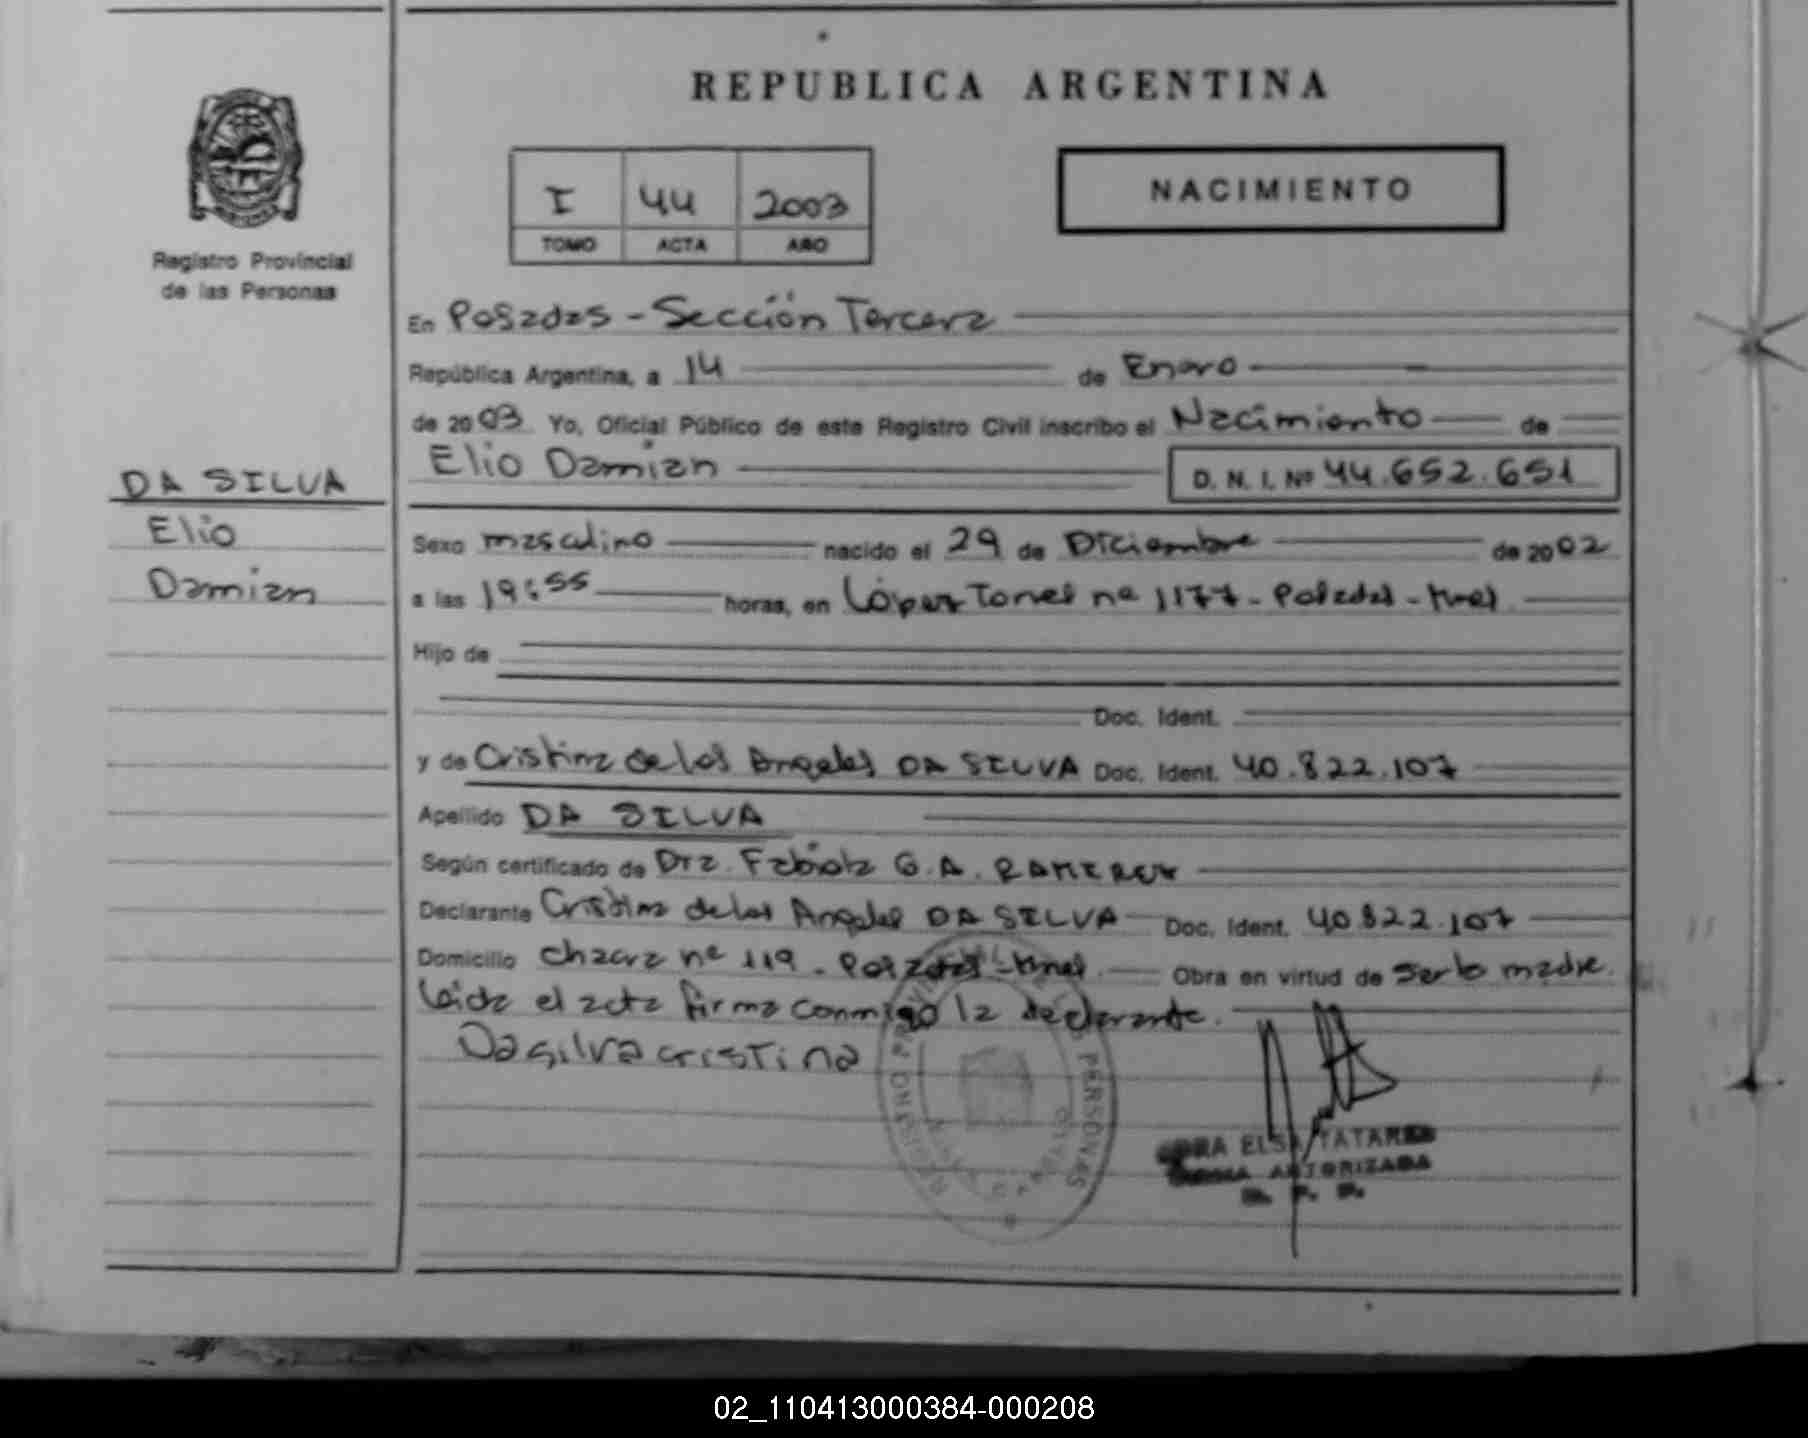 REPUBLICA ARGENTINA
I 44 2003
TOMO ACTA AÑO
NACIMIENTO
Registro Provincial
de las Personas
DA SILVA
Elio
Damian
En Posadas - Sección Tercera
República Argentina, a 14 de Enero
de 2003 Yo, Oficial Público de este Registro Civil inscribo el Nacimiento de
Elio Damian D. N. I. Nº 44.652.651
Sexo masculino nacido el 29 de Diciembre de 2002
a las 19:55 horas, en López Torres nº 1177 - Posadas - Mnes.
Hijo de
Doc. Ident.
y de Cristina de los Angeles DA SILVA Doc. Ident. 40.822.107
Apellido DA SILVA
Según certificado de Dra. Fabiola G. A. RAMIREZ
Declarante Cristina de los Angeles DA SILVA Doc. Ident. 40.822.107
Domicilio chacra nº 119 - Posadas - Mnes. Obra en virtud de ser la madre.
Leida el acta firma conmigo la declarante.
Da silva cristina
REGISTRO PROVINCIAL DE LAS PERSONAS
ELSA TATAREN
FIRMA AUTORIZADA
R. P. P.
02_110413000384-000208